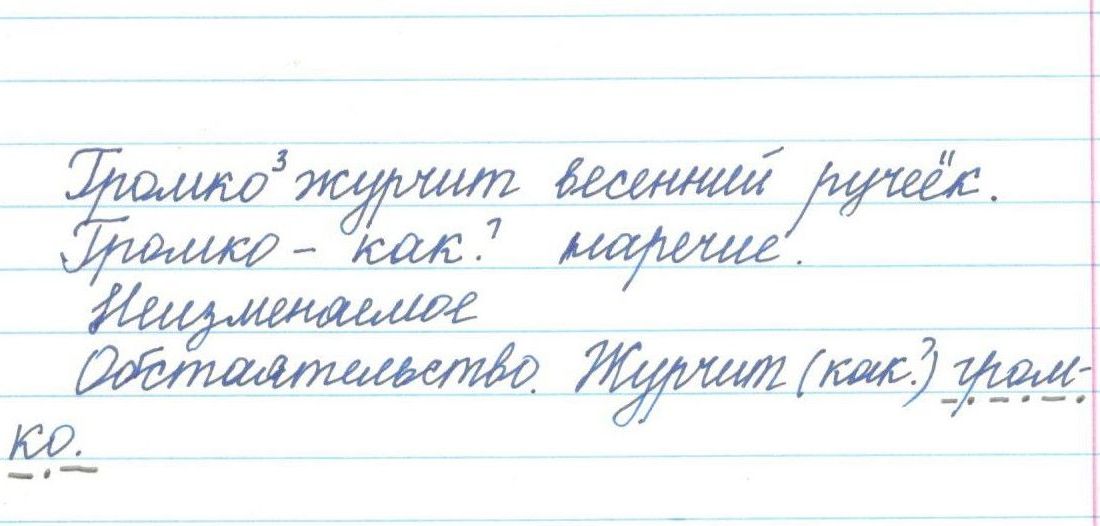 Громко³ журчит весенний ручеёк.
Громко – как? наречие.
Неизменяемое
Обстоятельство. Журчит (как?) гром-
ко.